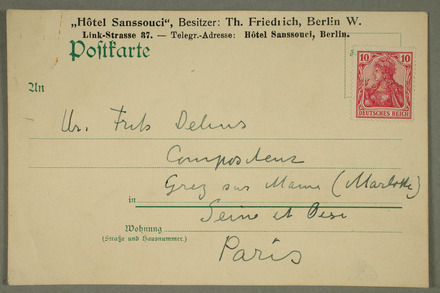 „Hôtel Sanssouci“, Besitzer: Th. Friedrich, Berlin W.
Link-Strasse 37. — Telegr.-Adresse: Hôtel Sanssouci, Berlin.
Postkarte
10 10
DEUTSCHES REICH
An
Mr. Frits Delius
Compositeur
Grez sur Marne (Marlotte)
in
Seine et Oise
Wohnung
(Straße und Hausnummer.)
Paris